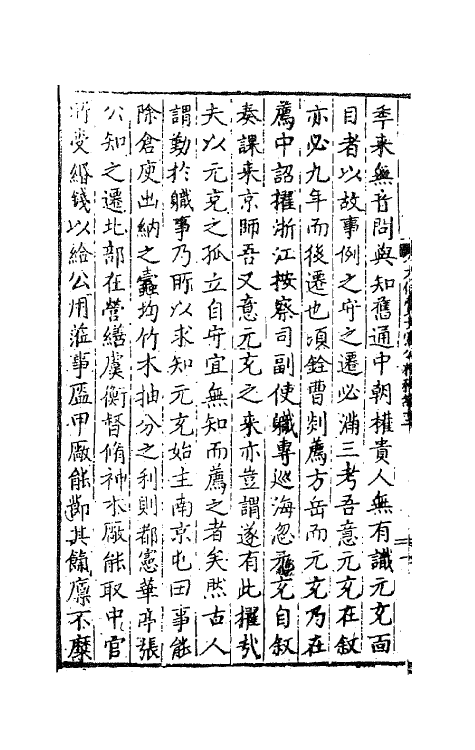 年来無音問與知舊通中朝權貴人無有識元充面
目者以故事例之守之遷必滿三考吾意元充在敘
亦必九年而後遷也頃銓曹剡薦方岳而元充乃在
薦中詔擢浙江按察司副使職專巡海忽元充自敘
奏課来京師吾又意元充之来亦豈謂遂有此擢哉
夫以元充之孤立自守宜無知而薦之者矣然古人
謂勤於職事乃所以求知元充始主南京屯田事能
除倉庾出納之蠹均竹木抽分之利則都憲華亭張
公知之遷北部在營繕虞衡督脩神木廠能取中官
所受緡錢以給公用蒞事盔甲廠能節其餼廪不糜